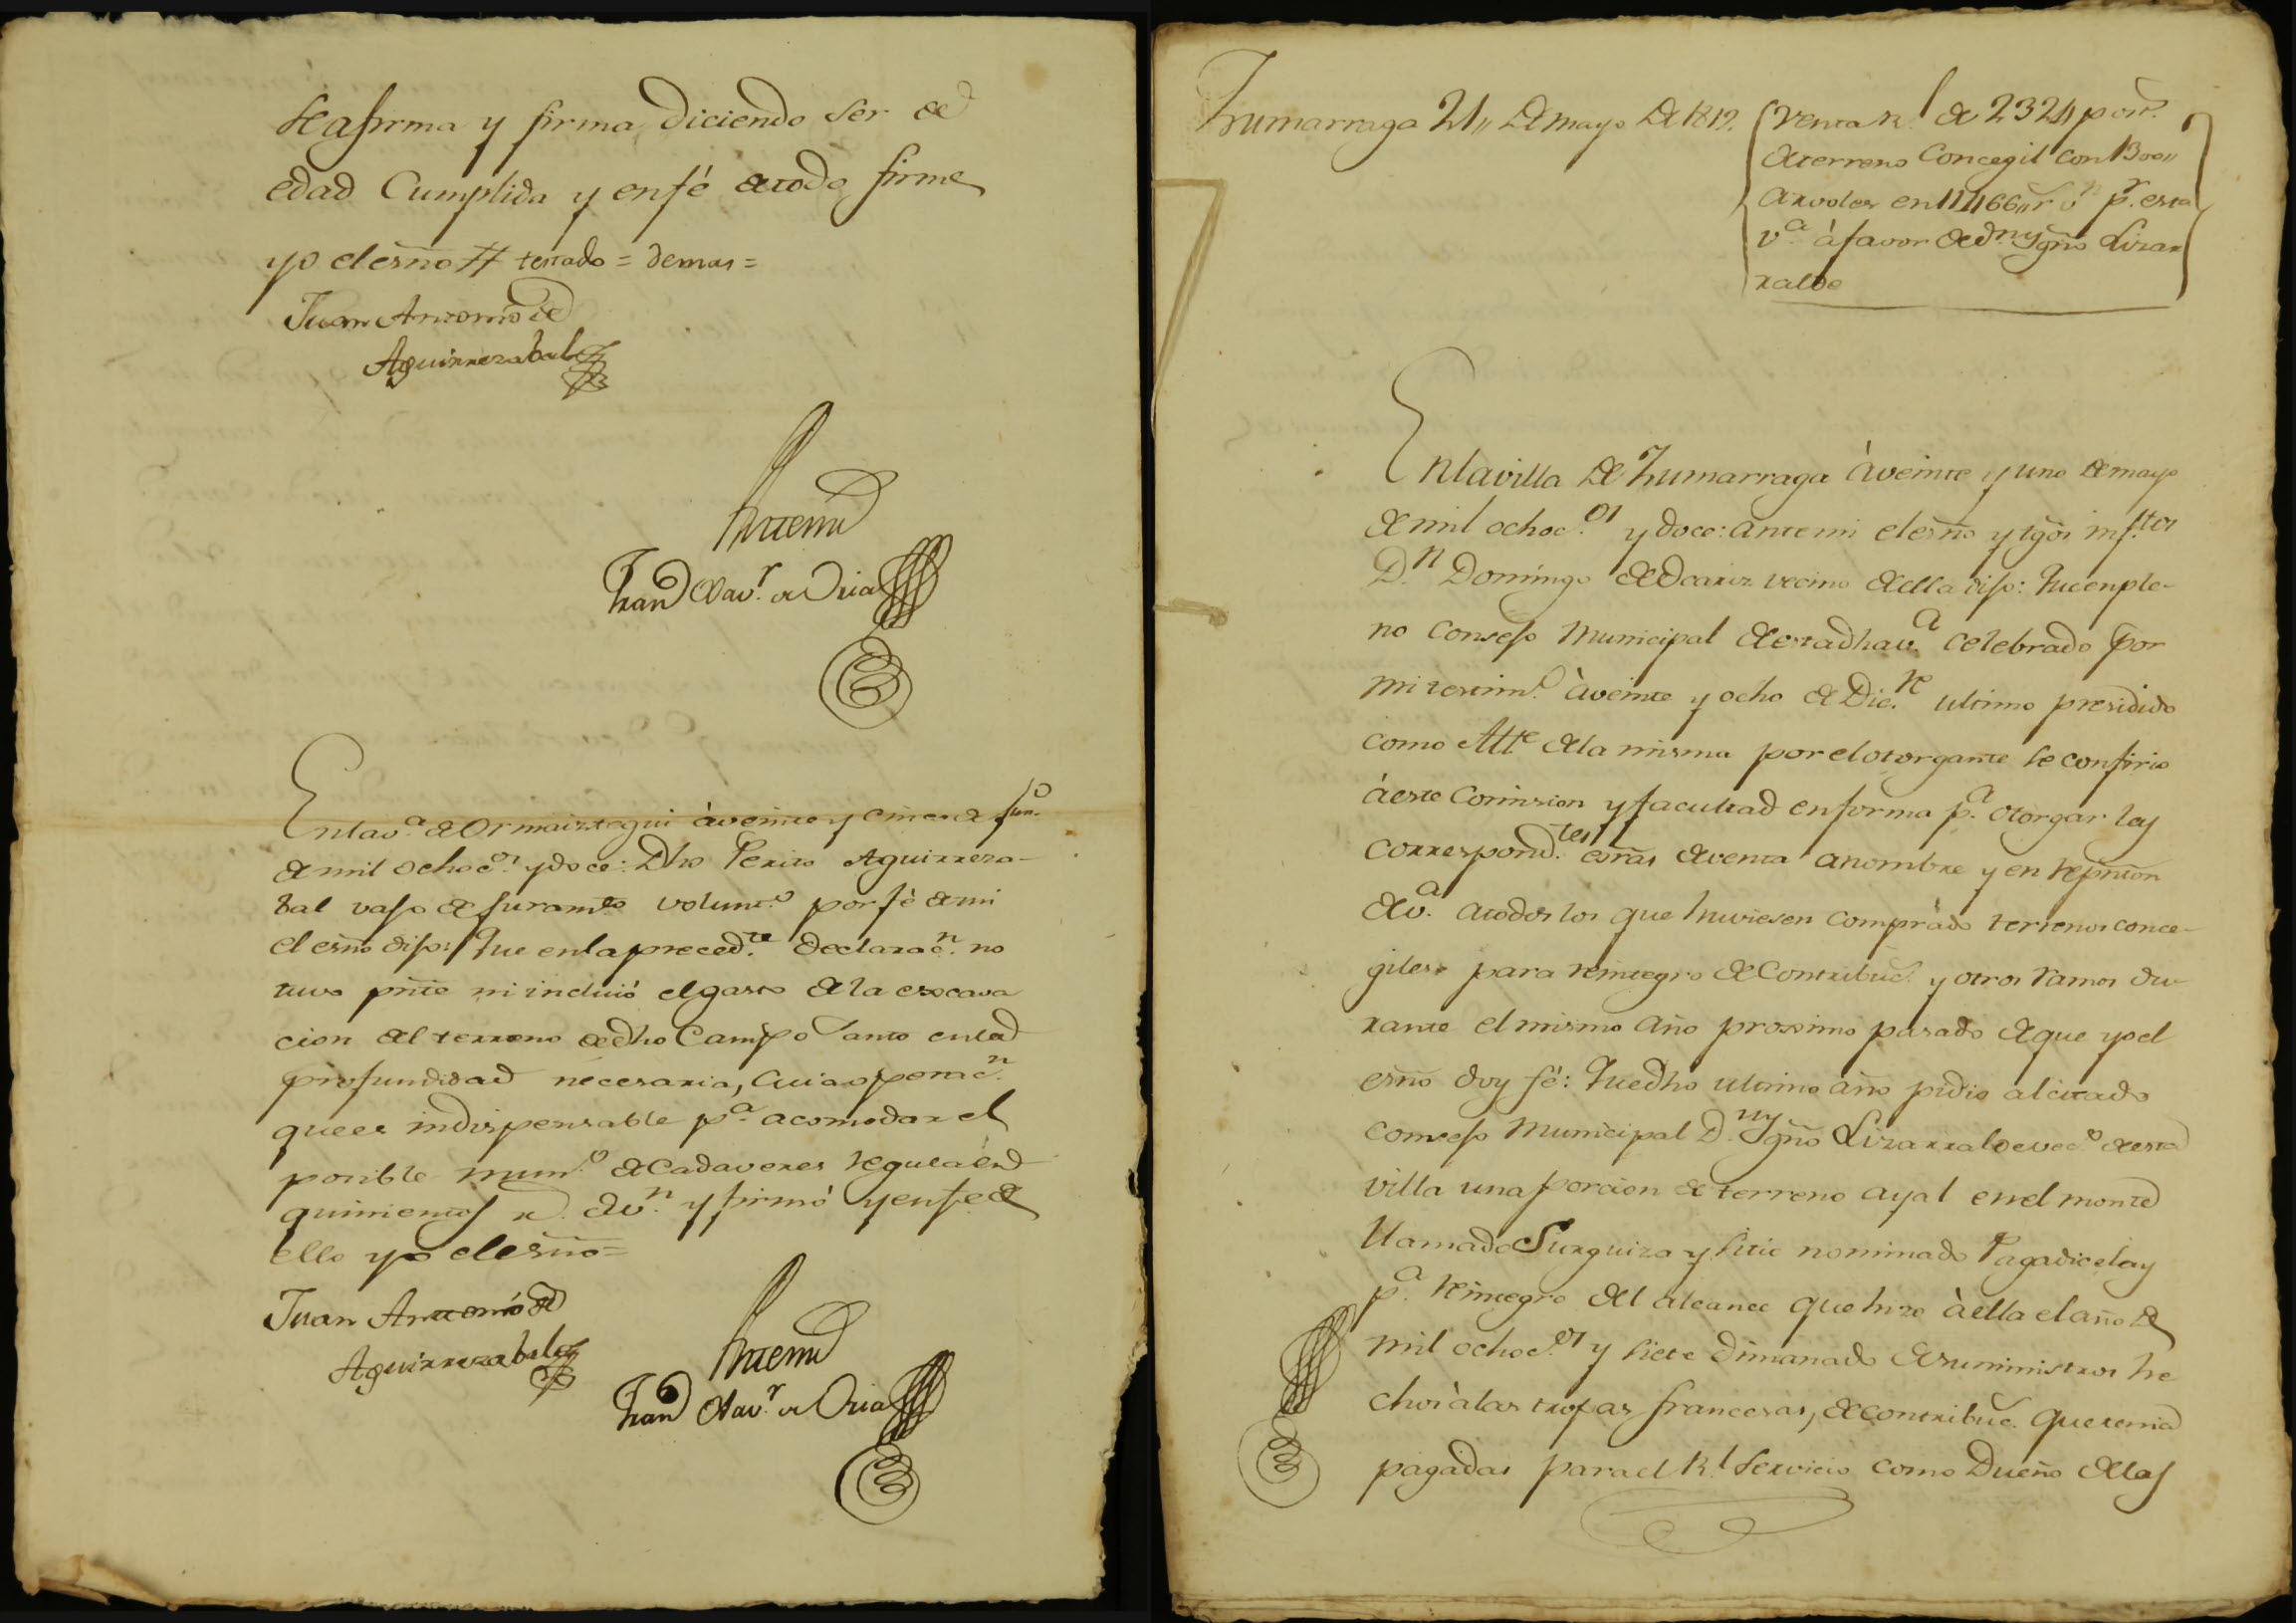 se afirma y firma, diciendo ser de
edad Cumplida y en fé de todo firme
yo el esño # testado = demas =
Juan Antonio de
Aguirrezabal
Antemi
Fran.co Xav.r de Oria
En la v.a de Ormaiztegui à veinte y cinco de Jun.o
de mil ochoc.os y doce: Dho Perito Aguirreza-
bal vajo de juram.to volunt.o por fé de mi
el esño dijo: Que en la preced.te declarac.n no
tuvo pñte ni incluió el gasto de la escava
cion del terreno de dho Campo Santo en la
profundidad necesaria, Cuia operac.n
que es indispensable p.a acomodar el
posible num.o de Cadaveres regula en
quinientos r. de v.n y firmó y en fe de
ello yo el esño =
Juan Antonio de
Aguirrezabal
Antemi
Fran.co Xav.r de Oria
Zumarraga 21,, de mayo de 1812.
Venta R.l de 232,, post.s
de terreno Concegil con 1300,,
arvoles en 11,,166,, r.s v.n p.r esta
v.a à favor de d.n Ygño Lizar
ralde
En la villa de Zumarraga à veinte y uno de mayo
de mil ochoc.os y doce: ante mi el esño y tgõs inf.tos
D.n Domingo de Dcariz vecino de ella dijo: Que en ple-
no consejo municipal de esta dha v.a celebrado por
mi testim.o à veinte y ocho de Dic.re ultimo presidido
como Alt.e de la misma por el otorgante se confirio
à este Comision y facultad en forma p.a otorgar las
correspond.tes esñas de venta a nombre y en repñton
de v.a a todos los que huviesen comprado terrenos conce-
giles para reintegro de Contribuc.s y otros ramos du-
rante el mismo año proximo pasado de que yo el
esño doy fé: Que dho ultimo año pidio al citado
consejo municipal D.n Ygño Lizarralde vec.o de esta
villa una porcion de terreno ayal en el monte
llamado Surguiza y sitio nominado Pagadicelay
p.a reintegro del alcance que hizo à ella el año de
mil ochoc.os y siete dimanado de suministros he
chos à las tropas francesas, de contribuc.s que tenia
pagadas para el R.l servicio como Dueño de las